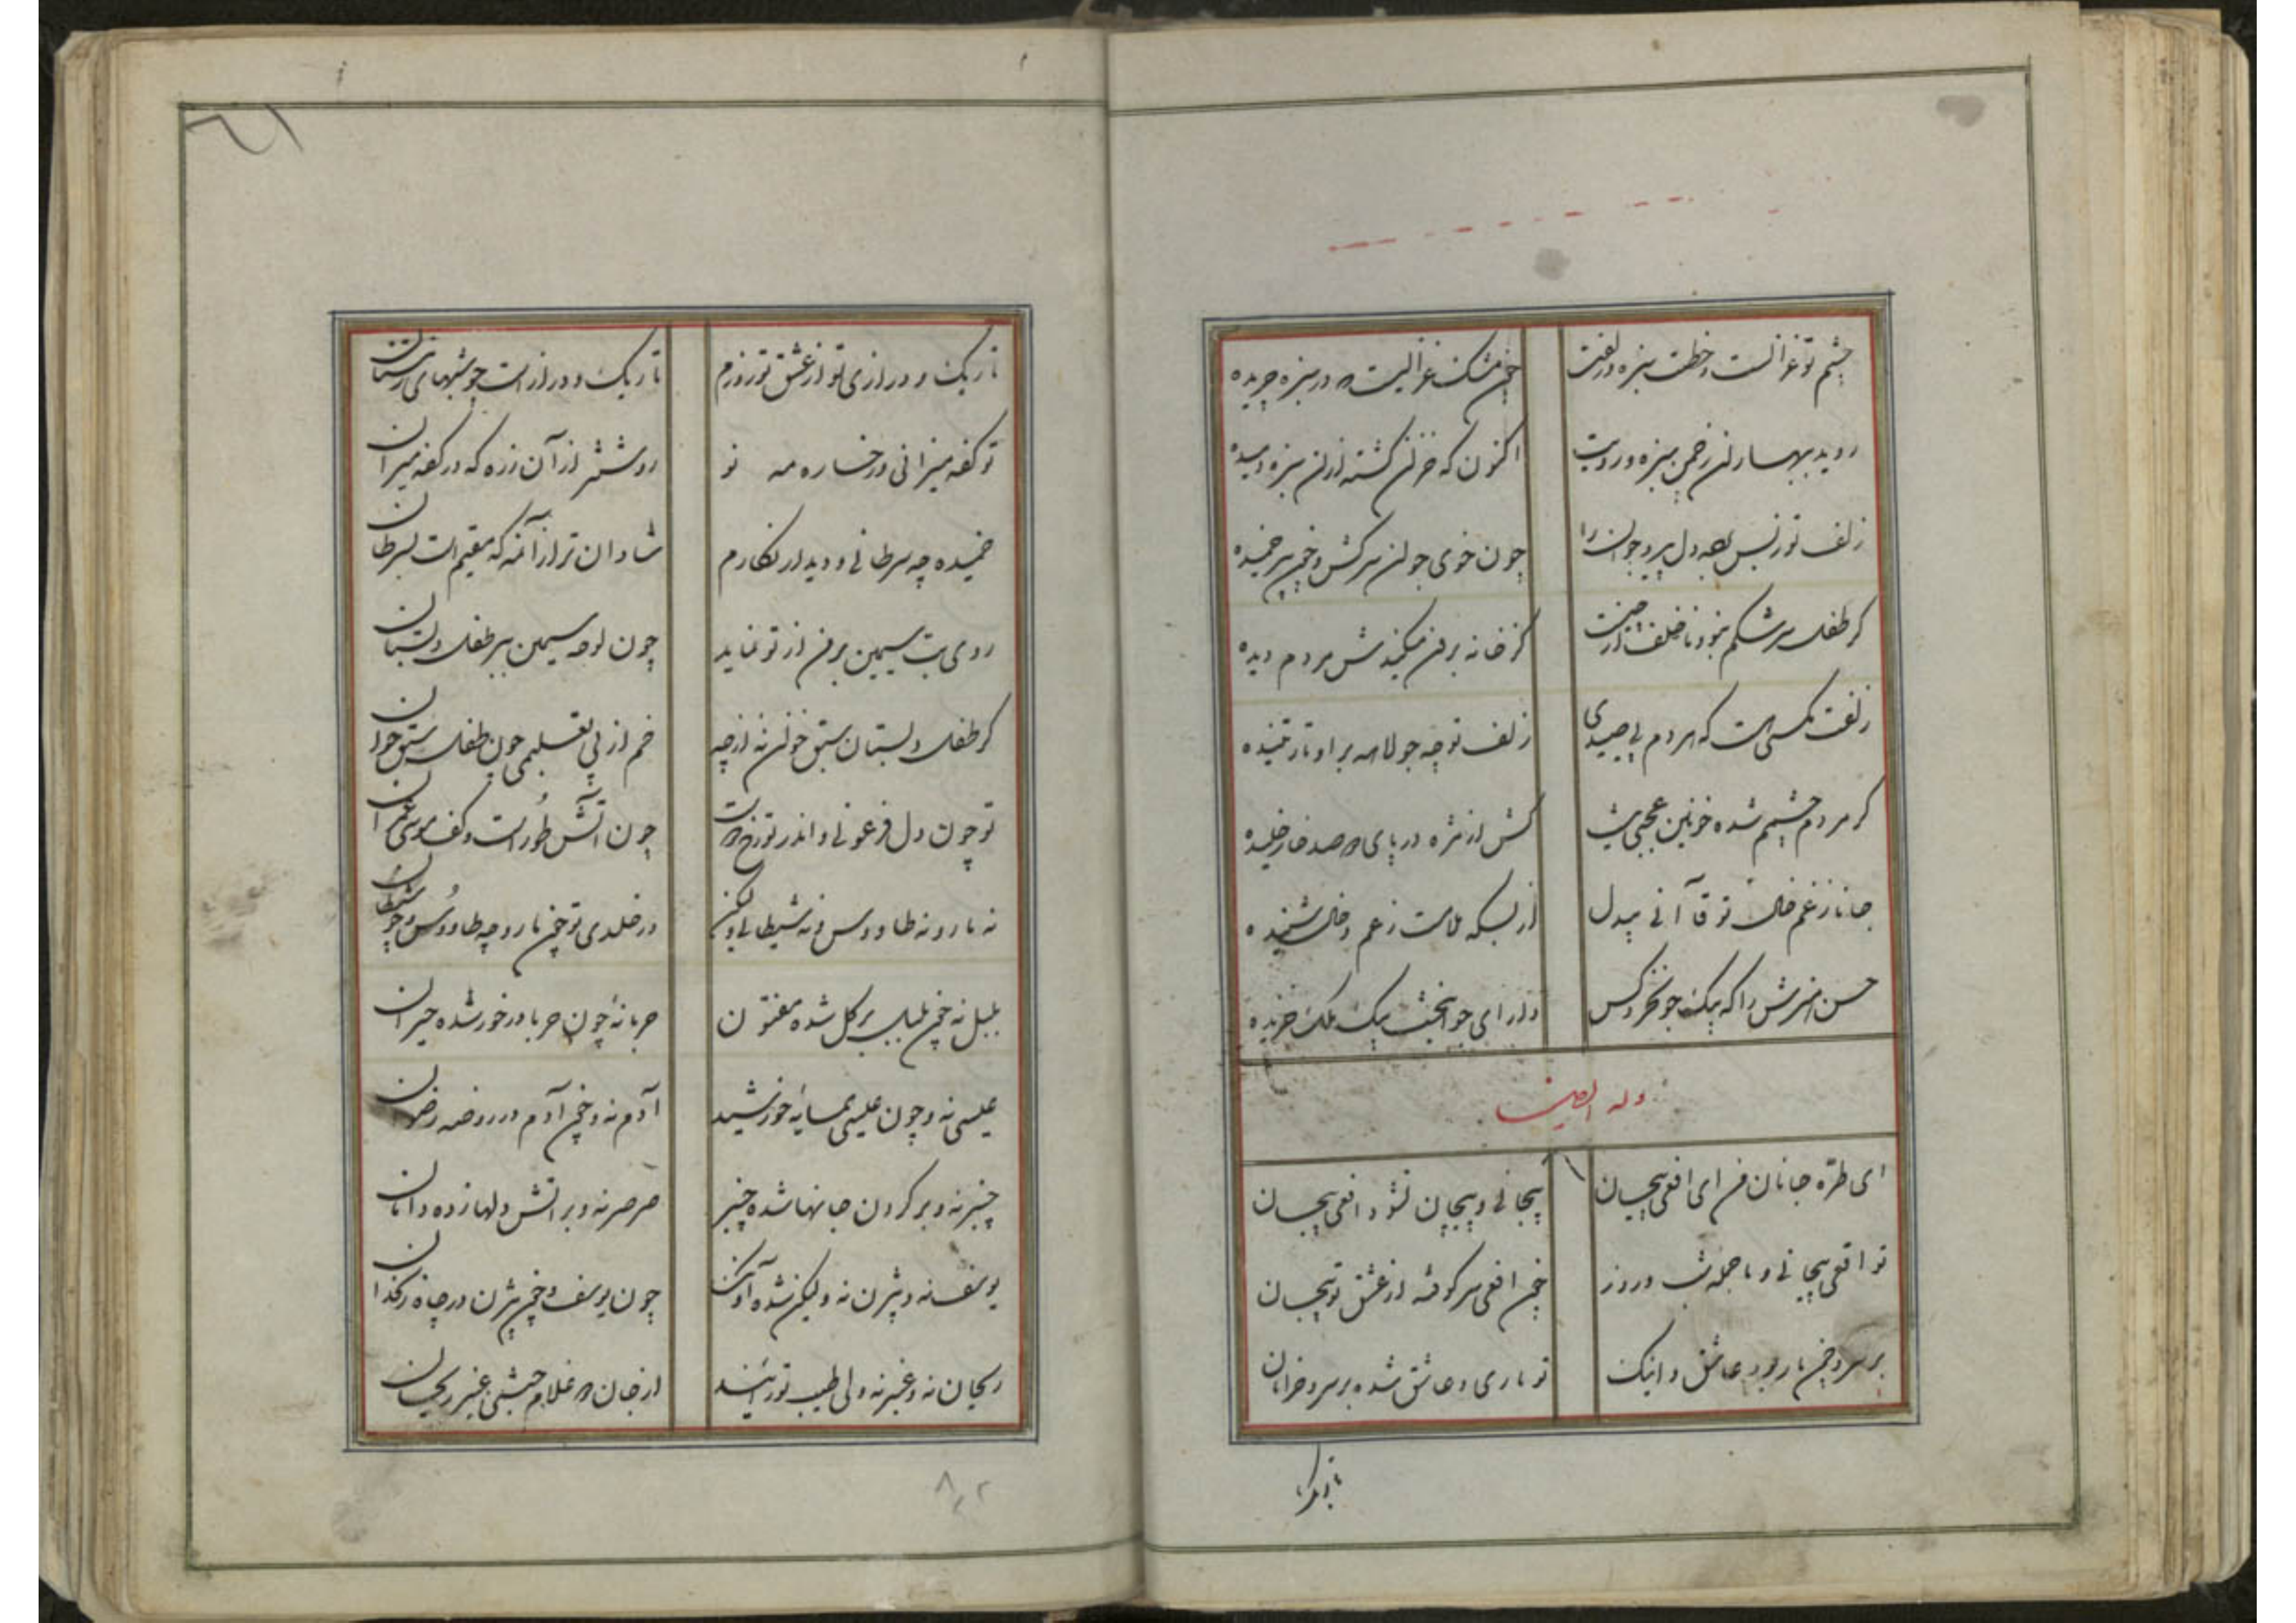 چشم تو غزالست و خطت سبزه و زلفت
چون مشک غزالیست که در سبزه چریده
روید ببهاران زخمن سبزه و رویت
اکنون که خزان گشته ازان سبزه دمیده
زلف تو ز بس برده دل پیر و جوان را
چون خوی جوان سرکش و چون پیر خمیده
گر طفل سرشکم نبود ناخلف از چیست
کز خانه برون میکندش مردم دیده
زلفت مگسی است که هر دم پی صیدی
زلف تو چه جولاهه براو تار تنیده
گر مردم چشمم شده خونین عجبی نیست
کش از مژه در پای دو صد خار خلیده
جانا ز غم خال تو قاآنی بیدل
از بسکه ملامت ز عم و خال شنیده
حسن هنرش را که بیک جو نخرد کس
دارای جوانبخت بیک ملک خریده
وله ایضا
ای طره جانان من ای افعی پیچان
پیچانی و پیچان نشود افعی بیجان
تو افعی پیچانی و ما جمله شب و روز
چون افعی سرکوفته از عشق تو پیچان
بر سرو چمن مار بود عاشق و اینک
تو ماری و عاشق شده بر سرو خرامان
تاریک
تاریک و درازی تو از عشق تو روزم
تاریک و دراز است چو شبهای زمستان
تو کفه میزانی و رخساره مه تو
روشنتر از آن زهره که در کفه میزان
خمیده چه سرطانی و دیدار نگارم
شادان تر از آن مه که مقیم است بسرطان
روی بت سیمین بر من از تو نماید
چون لوحه سیمین ببر طفل دبستان
گر طفل دبستان سبق خوان نه از چه
خم از پی تعلیمی چون طفل سبق خوان
تو چون دل فرعونی و اندر تو رخ دوست
چون آتش طور است و کف موسی عمران
نه مار و نه طاووس و نه شیطانی ولیکن
در خلدی تو چون مار و چه طاووس و چو شیطان
بلبل نه و چون بلبل بر گل شده مفتون
حربا نه و چون حربا در خور شده حیران
عیسی نه و چون عیسی همسایه خورشید
آدم نه و چون آدم در روضه رضوان
چنبر نه و بر گردن جانها شده چنبر
صرصر نه و بر آتش دلها زده دامان
یوسف نه و بیژن نه ولیکن شده آونگ
چون یوسف و چون بیژن در چاه زنخدان
ریحان نه و عنبر نه ولی طیب تو را هست
از جان دو غلام حبشی عنبر و ریحان